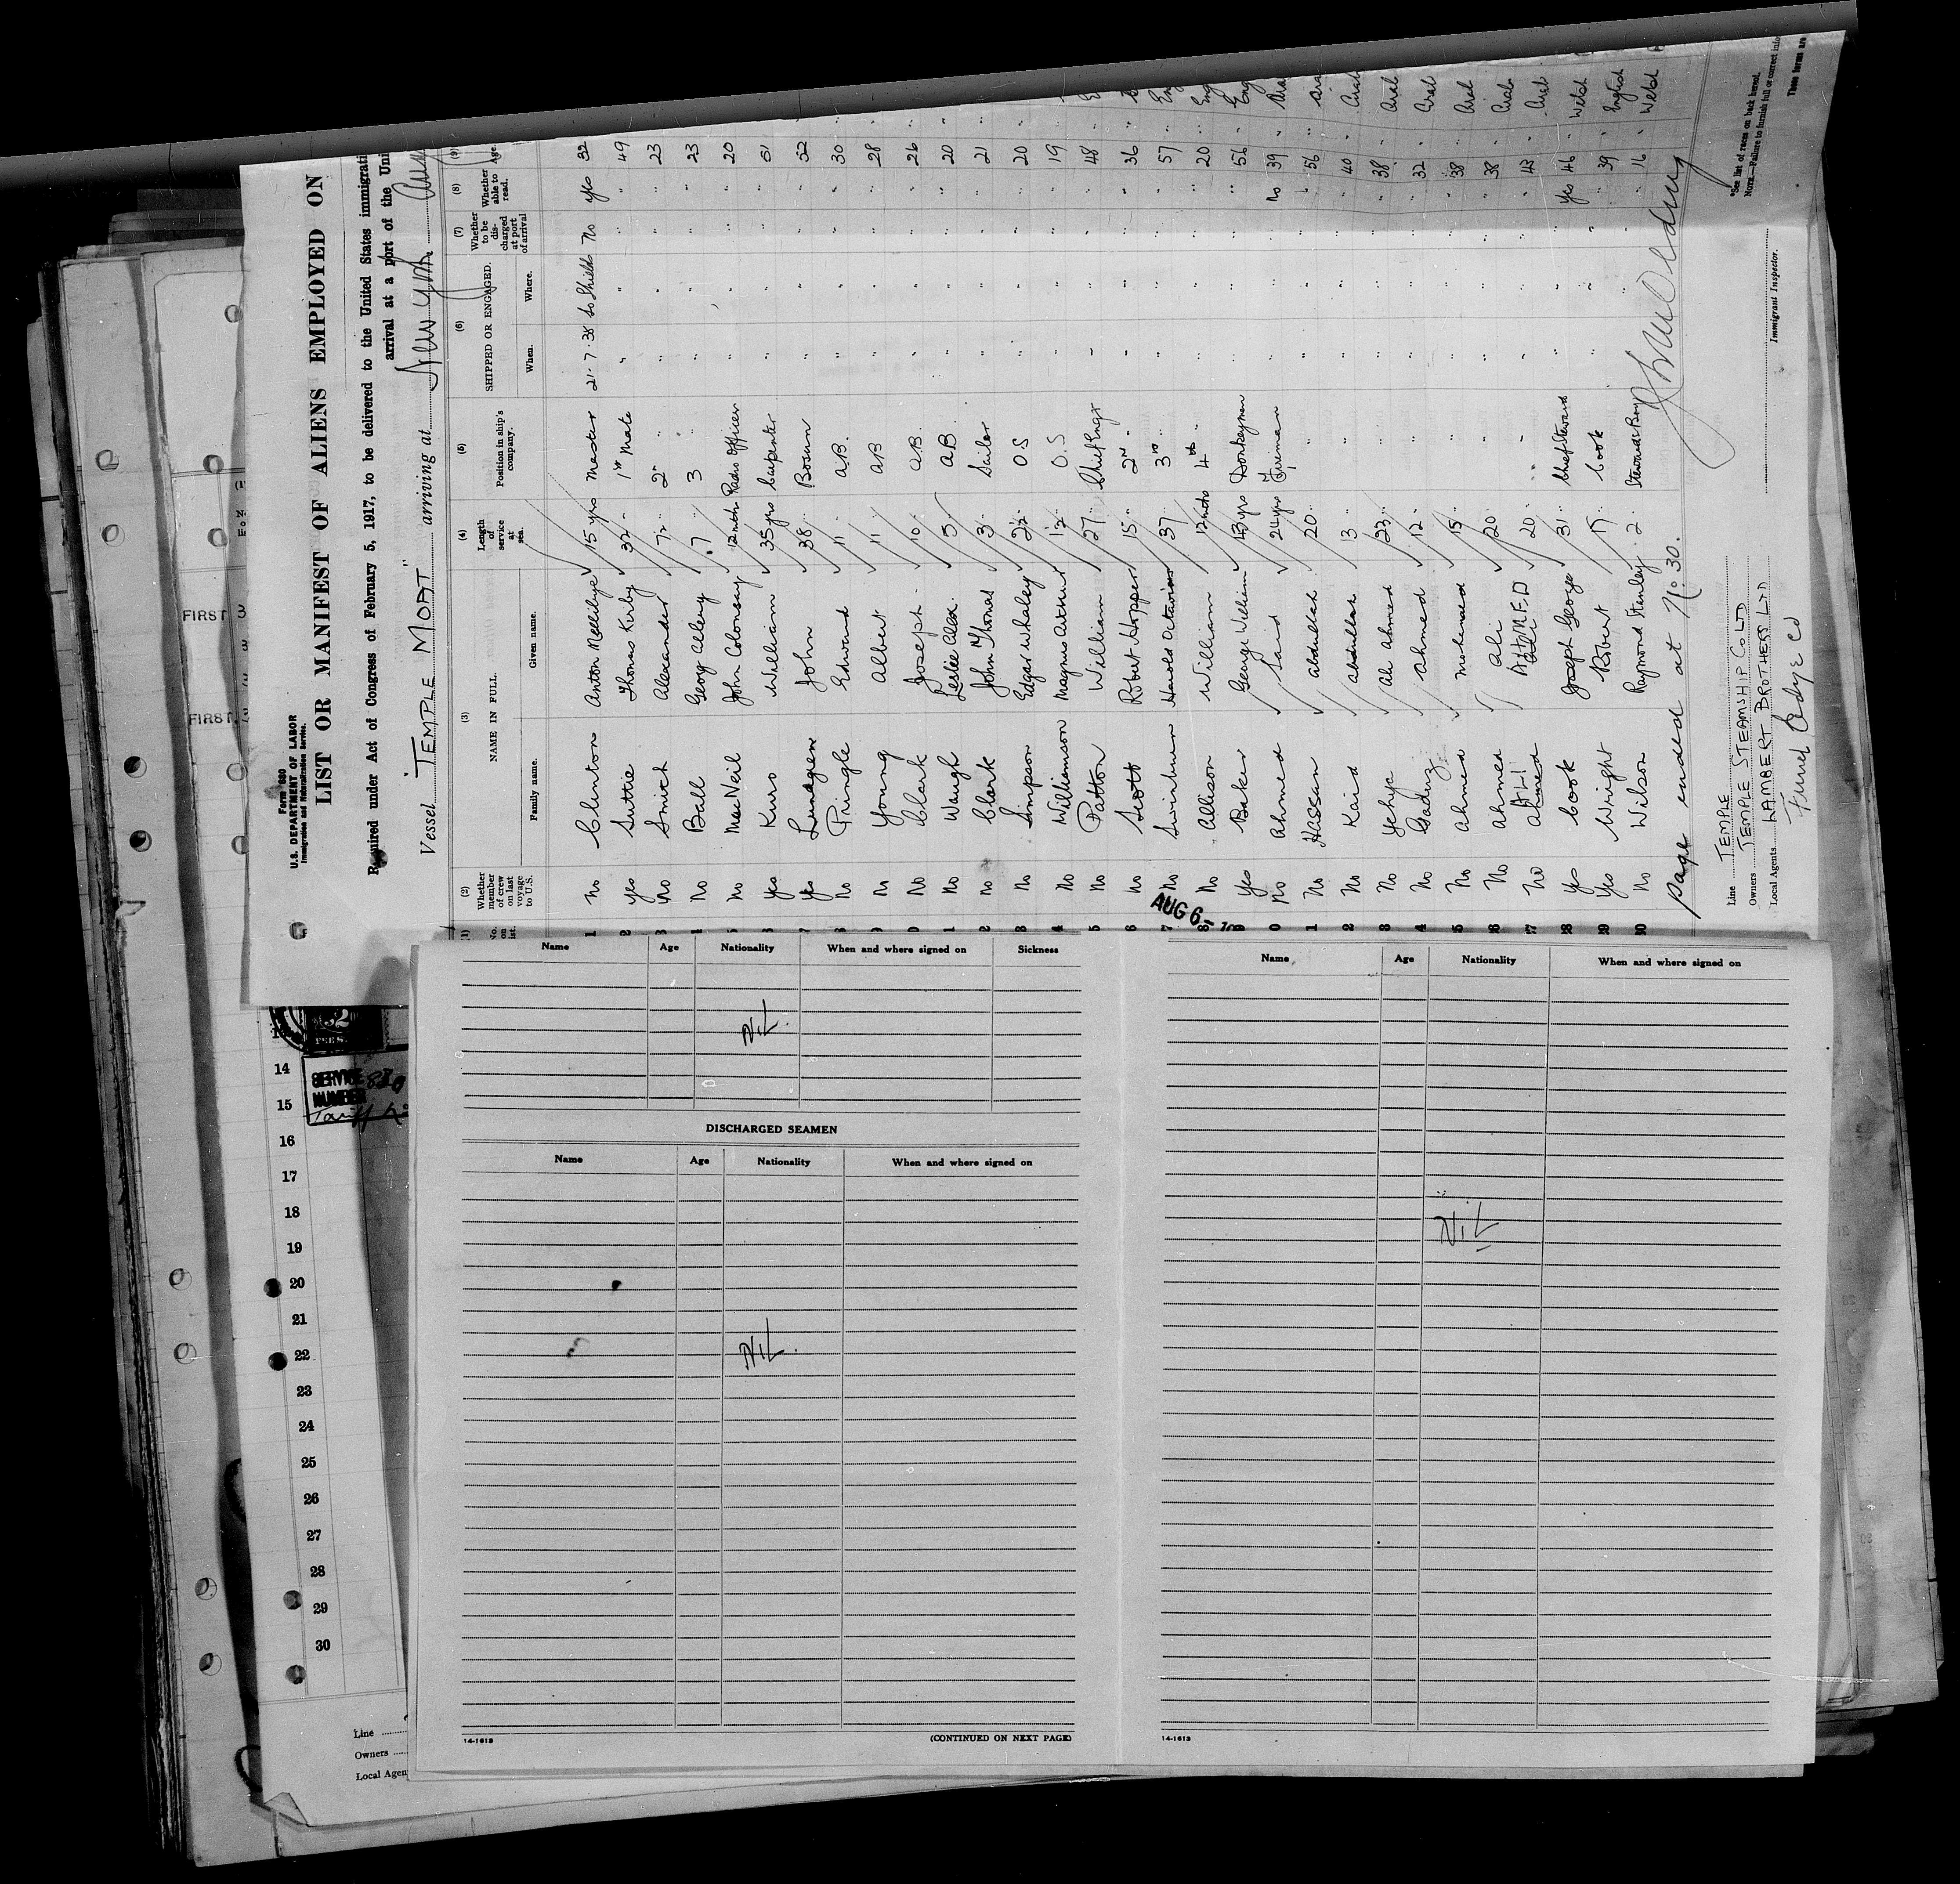 Form 680
U.S. DEPARTMENT OF LABOR
Immigration and Naturalization Service.
LIST OR MANIFEST OF ALIENS EMPLOYED ON
Required under Act of Congress of February 5, 1917, to be delivered to the United States immigrati
arrival at a port of the Uni
Vessel "TEMPLE MOAT" arriving at New York Aug
(1) (2) (3) (4) (5) (6) (7) (8) (9)
No. on list. Whether member of crew on last voyage to U.S. NAME IN FULL. Length of service at sea. Position in ship's company. SHIPPED OR ENGAGED. Whether to be discharged at port of arrival Whether able to read. Age
Family name. Given name. When. Where.
1 No Clinton Anton 15 yrs Master 21.7.38 So Shields No yes 32
2 yes Suttie Thomas Kirby 32 " 1st Mate " " " " 49 "
3 No Smith Alexander 7½ " 2nd " " " " " 23 "
4 No Ball Georg 7 " 3 " " " " " 23 "
No MacNeil John Colonsay 12 mths Radio Officer " " " " 20 "
6 yes Kurs William 35 yrs Carpenter " " " " 51 "
7 yes Lundgren John 38 " Bosun " " " " 52 "
8 No Pringle Edward 11 " A.B. " " " " 30 "
9 No Young Albert 11 " AB " " " " 28 "
0 No Clark Joseph 10 " A.B. " " " " 26 "
1 No Waugh Leslie Alex. 5 " A.B. " " " " 20 "
2 No Clark John Thomas 3 " Sailor " " " " 21 "
3 No Simpson Edgar Whaley 2½ " O S " " " " 20 "
4 No Williamson Magnus Arthur 1½ " O.S " " " " 19 "
5 No Patton William 27 " Chief Engr " " " " 48 "
6 No Scott Robert Hopper 15 " 2nd " " " " " 36 "
7 No Swinburn Harold Octavius 37 " 3rd " " " " " 57 "
8 No Allison William 12 mths 4th " " " " " 20 " Eng
9 yes Baker George William 13 yrs Donkeyman " " " " 56 " Eng
0 No Ahmed Said 24 yrs Fireman " " " No 39 "
1 No Hassan Abdullah 20 " " " " " " 56 "
2 No Kaid Abdullah 13 " " " " " " 40 " Arab
3 No Yehya Ali Ahmed 23 " " " " " " 38 " Arab
4 No Ahmed 12 " " " " " " 32 " Arab
5 No Ahmed Mohamed 15 " " " " " " 38 " Arab
26 No Ahmed Ali 20 " " " " " " 38 " Arab
27 No ALI AHMED 20 " " " " " " 43 " Arab
28 yes Cook Joseph George 31 " Chief Steward " " " yes 46 " Welsh
29 yes Wright Robert 17 " Cook " " " " 39 " English
30 No Wilson Raymond Stanley 2 " Stewards Boy " " " " 16 " Welsh
Page ended at No 30.
Line TEMPLE
Owners TEMPLE STEAMSHIP CO LTD
Local Agents LAMBERT BROTHERS LTD
Funch Edye Co
Immigrant Inspector.
*See list of races on back hereof.
NOTE.—Failure to furnish full or correct info
These forms are
AUG 6-
FIRST
FIRST
Name Age Nationality When and where signed on Sickness
Nil
DISCHARGED SEAMEN
Name Age Nationality When and where signed on
Nil
14-1613 (CONTINUED ON NEXT PAGE)
Name Age Nationality When and where signed on
Nil
14-1613
SERVICE
NUMBER
Tariff
14
15
16
17
18
19
20
21
22
23
24
25
26
27
28
29
30
Line
Owners
Local Agen